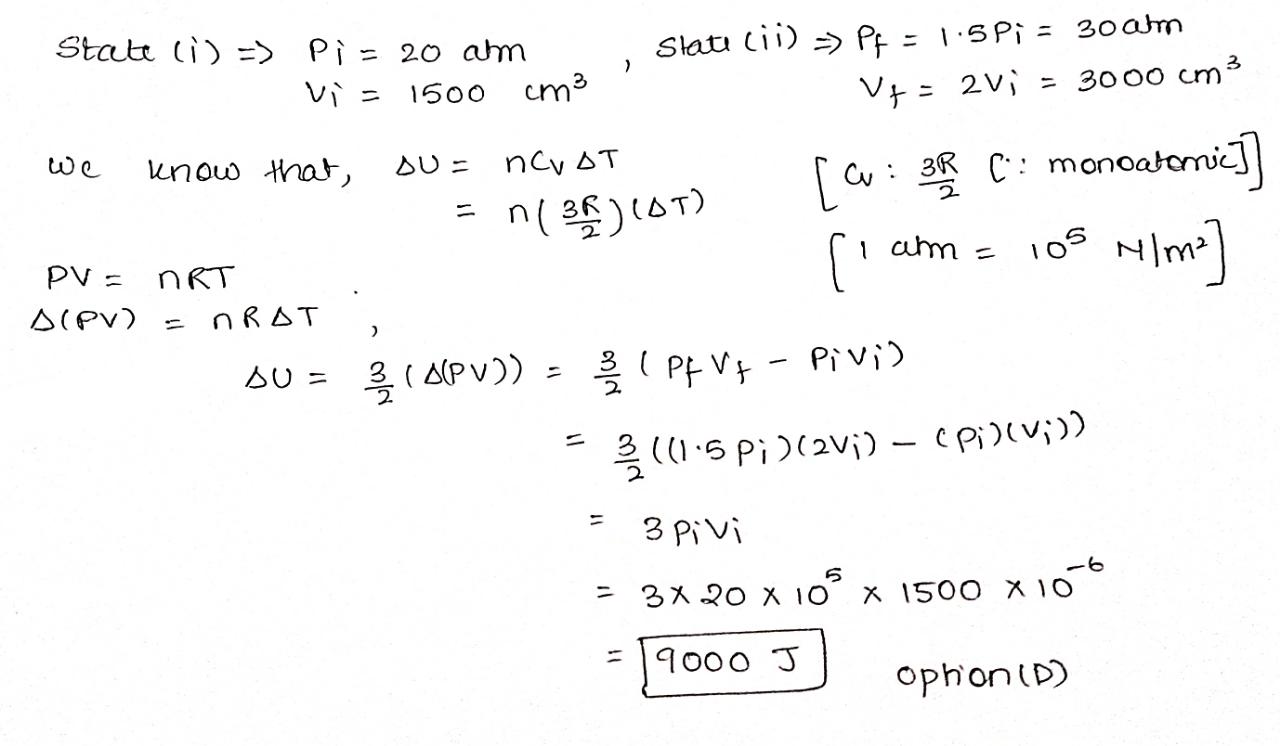 State (i) => Pi = 20 atm , State (ii) => Pf = 1.5Pi = 30 atm
Vi = 1500 cm³ Vf = 2Vi = 3000 cm³
We know that, ΔU = nCvΔT [Cv : 3R/2 [∵ monoatomic]]
= n(3R/2)(ΔT)
[1 atm = 10⁵ N/m²]
PV = nRT
Δ(PV) = nRΔT ,
ΔU = 3/2 (Δ(PV)) = 3/2 (PfVf - PiVi)
= 3/2 ((1.5Pi)(2Vi) - (Pi)(Vi))
= 3PiVi
= 3 x 20 x 10⁵ x 1500 x 10⁻⁶
= 9000 J option (D)